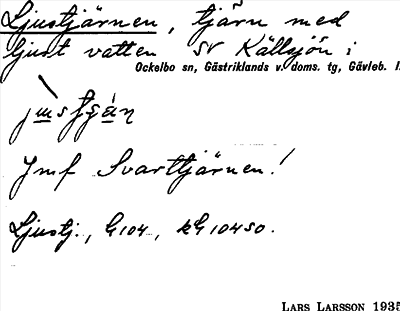 Ljustjärnen, tjärn med
ljust vatten SV Källsjön i
Ockelbo sn, Gästriklands v. doms. tg, Gävleb. l.
Jmf Svarttjärnen!
Ljustj., G104, kG10450.
LARS LARSSON 1935